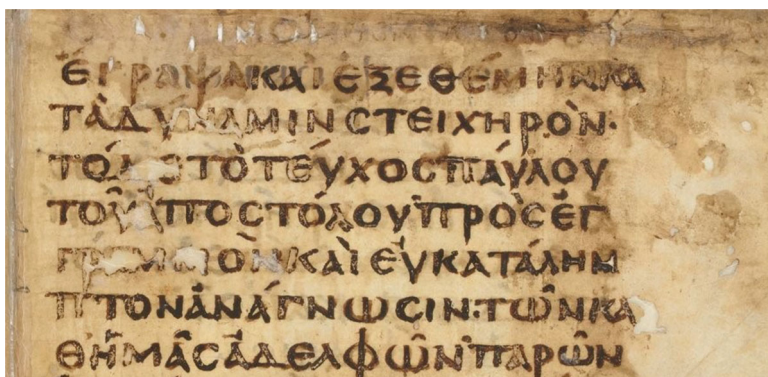 ΕΓΡΑΨΑΚΑῚΕΞΕΘΈΜΗΝΚΑ
ΤᾺΔΎΝΑΜΙΝϹΤΕΙΧΗΡῸΝ·
ΤΌΔΕΤῸΤΕΎΧΟϹΠΑΎΛΟΥ
ΤΟΥ͂ἈΠΟϹΤΌΛΟΥΠΡῸϹἘΓ
ΓΡΑΜΜῸΝΚΑῚΕΥ̓ΚΑΤΆΛΗΜ
ΠΤΟΝἈΝΆΓΝΩϹΙΝ·ΤΩ͂ΝΚΑ
ΘΗ͂ΜΑ͂ϹἈΔΕΛΦΩ͂ΝΠΑΡΩ͂Ν